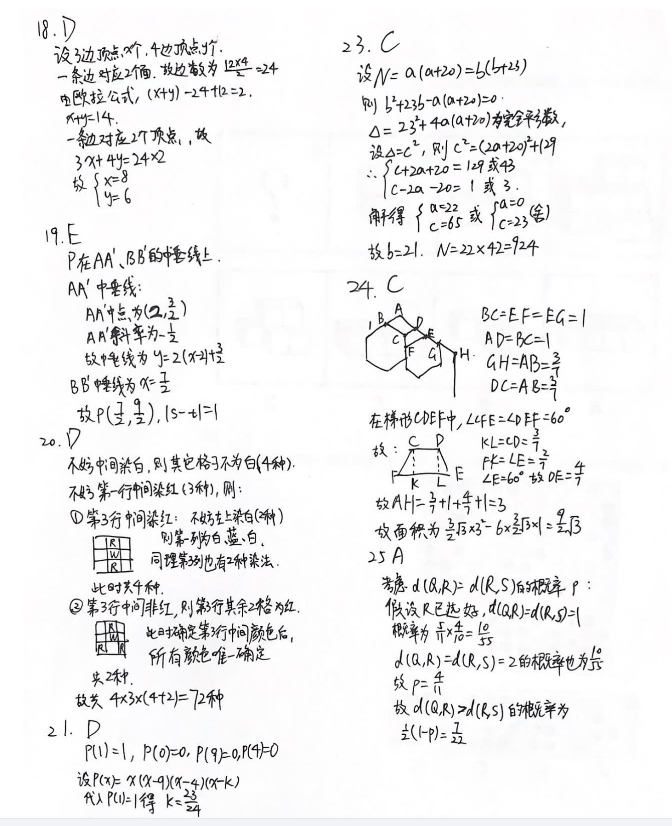 18. D
设3边顶点x个, 4边顶点y个.
一条边对应2个面. 故边数为 12×4/2 =24
由欧拉公式, (x+y) -24+12=2.
x+y=14.
一条边对应2个顶点, 故
3x+4y=24×2
故 { x=8
y=6
19. E
P在AA'、BB'的中垂线上.
AA'中垂线:
AA'中点为(2, 3/2)
AA'斜率为-1/2
故中垂线为 y=2(x-2)+3/2
BB'中垂线为 x=7/2
故P(7/2, 9/2), |s-t|=1
20. D
不妨中间染白, 则其它格子不为白(4种).
不妨第一行中间染红(3种), 则:
① 第3行中间染红: 不妨左上染白(2种)
则第一列为白、蓝、白.
同理第3列也有2种染法.
R
W
R
此时共4种.
② 第3行中间非红, 则第3行其余2格为红.
此时确定第3行中间颜色后,
所有颜色唯一确定
R
W
R R
共2种.
故共 4×3×(4+2)=72种
21. D
P(1)=1, P(0)=0, P(9)=0, P(4)=0
设P(x)= x(x-9)(x-4)(x-k)
代入P(1)=1得 k=23/24
23. C
设N= a(a+20)=b(b+23)
则 b²+23b-a(a+20)=0.
Δ= 23²+4a(a+20)为完全平方数,
设Δ=c², 则 c²=(2a+20)²+129
∴ { c+2a+20=129 或43
c-2a-20= 1 或 3.
解得 { a=22 c=65 或 { a=0 c=23 (舍)
故b=21. N=22×42=924
24. C
A
B
D
C
E
F
G
H
BC=EF=EG=1
AD=BC=1
GH=AB=3/7
DC=AB=3/7
在梯形CDEF中, ∠CFE=∠DEF=60°
故:
C D
F K L E
KL=CD=3/7
FK=LE=2/7
∠E=60° 故DE=4/7
故AH=3/7+1+4/7+1=3
故面积为 3/2√3×3²-6×3/2√3×1=9/2√3
25 A
考虑 d(Q,R)= d(R,S)的概率 p:
假设R已选好, d(Q,R)=d(R,S)=1
概率为 5/11×4/10=10/55
d(Q,R)=d(R,S)=2的概率也为10/55
故 p=4/11
故 d(Q,R)>d(R,S) 的概率为
1/2(1-p)=7/22